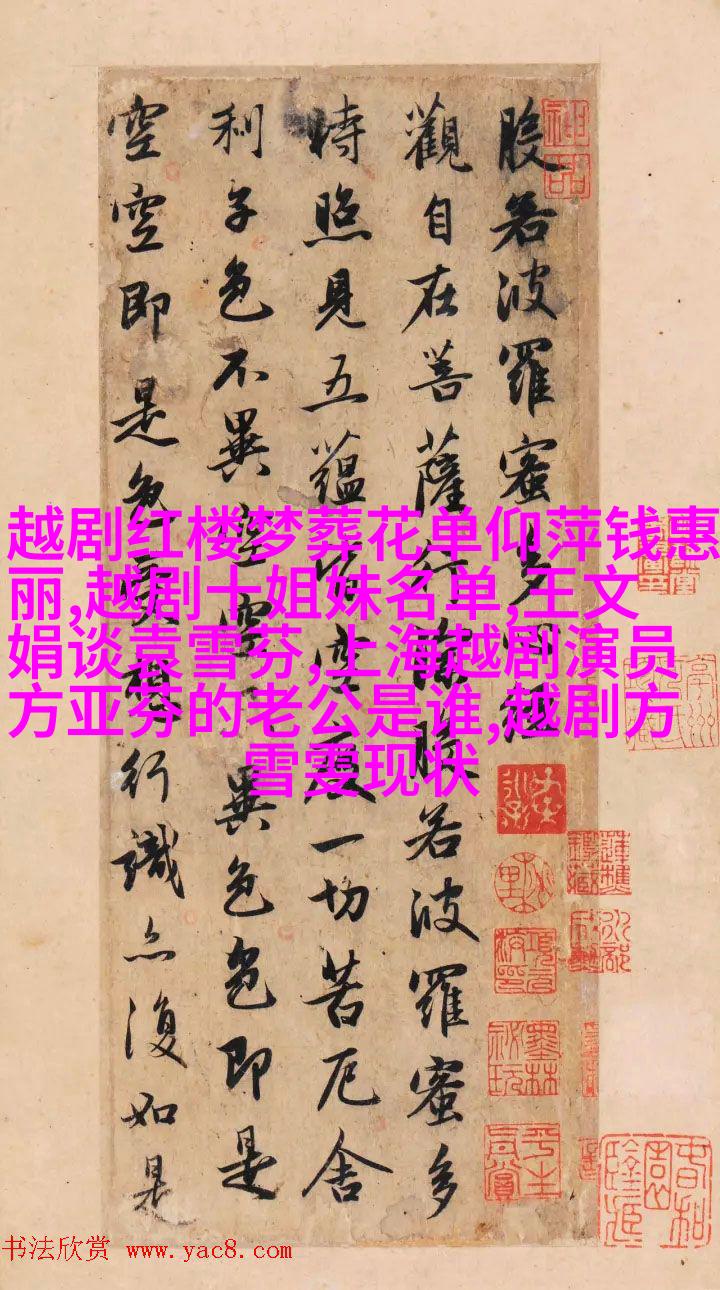 般若波羅蜜多心經
觀自在菩薩行深般若波羅蜜多
時照見五蘊皆空度一切苦厄舍
利子色不異空空不異色色即是
空空即是色受想行識亦復如是
神品
越剧红楼梦葬花单仰萍钱惠
丽,越剧十姐妹名单,王文
娟谈袁雪芬,上海越剧演员
方亚芬的老公是谁,越剧方
雪雯现状
墨林祕玩
书法欣赏 www.yac8.com